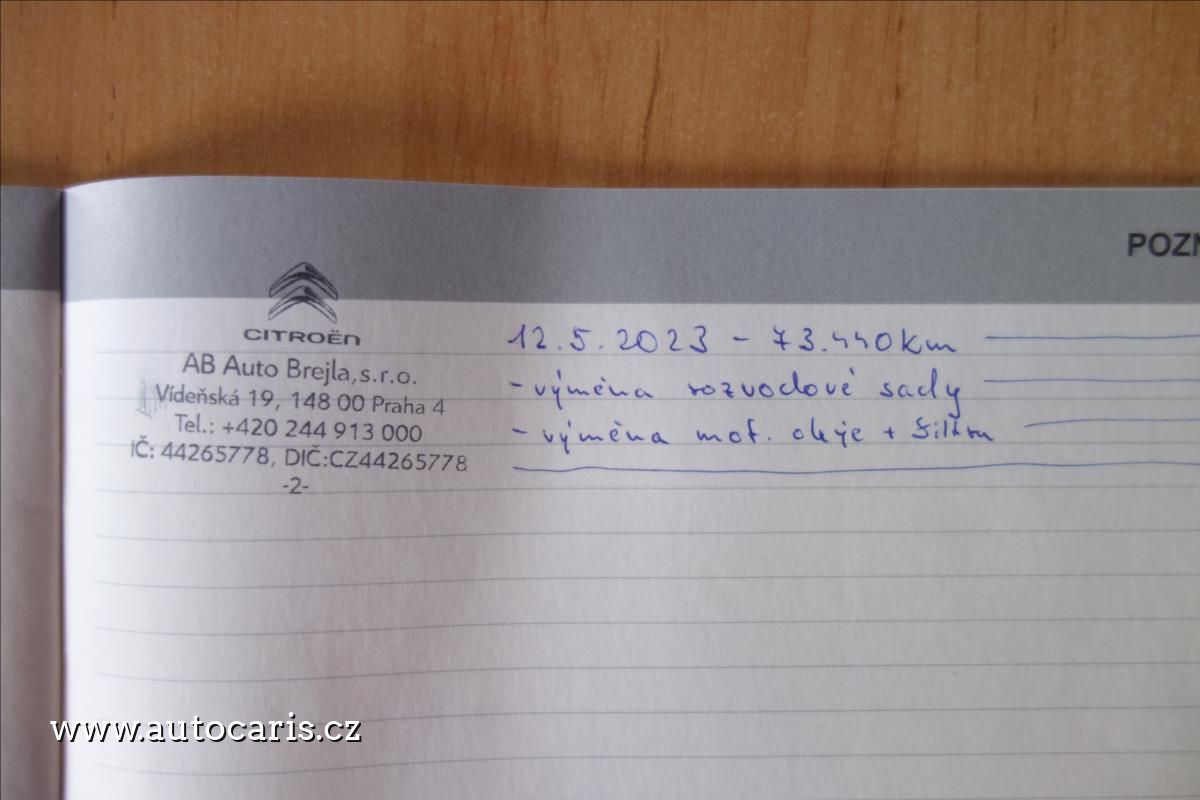 POZN
CITROËN
AB Auto Brejla,s.r.o.
Vídeňská 19, 148 00 Praha 4
Tel.: +420 244 913 000
IČ: 44265778, DIČ:CZ44265778
-2-
12.5.2023 - 73.440km
- výměna rozvodové sady
- výměna mot. oleje + filtru
www.autocaris.cz